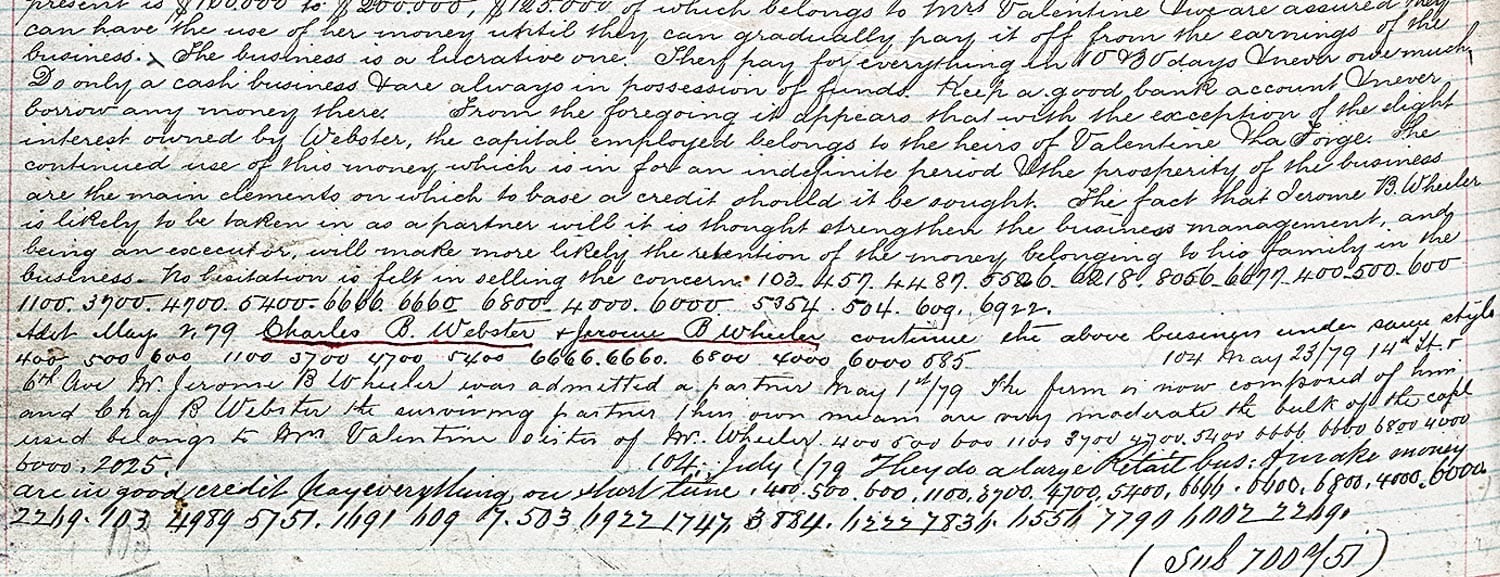 present is $100.000 to $200.000, $125.000 of which belongs to Mrs Valentine & we are assured they
can have the use of her money until they can gradually pay it off from the earnings of the
business. The business is a lucrative one. They pay for everything in 10 & 30 days & never owe much
Do only a cash business & are always in possession of funds. Keep a good bank account & never
borrow any money there. From the foregoing it appears that with the exception of the slight
interest owned by Webster, the capital employed belongs to the heirs of Valentine & La Forge. The
continued use of this money which is in for an indefinite period & the prosperity of the business
are the main elements on which to base a credit should it be sought. The fact that Jerome B. Wheeler
is likely to be taken in as a partner will it is thought strengthen the business management, and
being an executor, will make more likely the retention of the money belonging to his family in the
business. No hesitation is felt in selling the concern. 103. 457. 4487. 5526. 6218. 8056. 6677. 400. 500. 600
1100. 3700. 4700. 5400. 6666. 6660 6800 4000. 6000. 5354. 504. 609. 6922.
Adst May 2, 79 Charles B. Webster & Jerome B Wheeler, continue the above business under same style
400 500 600 1100 3700 4700 5400 6666. 6660. 6800 4000 6000 685 104 May 23/79 14th St. &
6th Ave Mr Jerome B Wheeler was admitted a partner May 1st/79 The firm is now composed of him
and Chas B Webster the surviving partner their own means are very moderate the bulk of the capl
used belongs to Mrs Valentine sister of Mr. Wheeler. 400 500 600 1100 3700 4700. 5400 6666 6660 6800 4000
6000. 2025. 104. July 1/79 They do a large Retail bus: & make money
are in good credit pay everything on short time. 400. 500. 600. 1100. 3700. 4700. 5400. 6666. 6660. 6800. 4000. 6000.
2269. 103 4989 5751. 1691 609 7. 503 6922 1747. 3884. 6222 7836. 6556 7790 6002 2269.
(Sub 700 a/51)